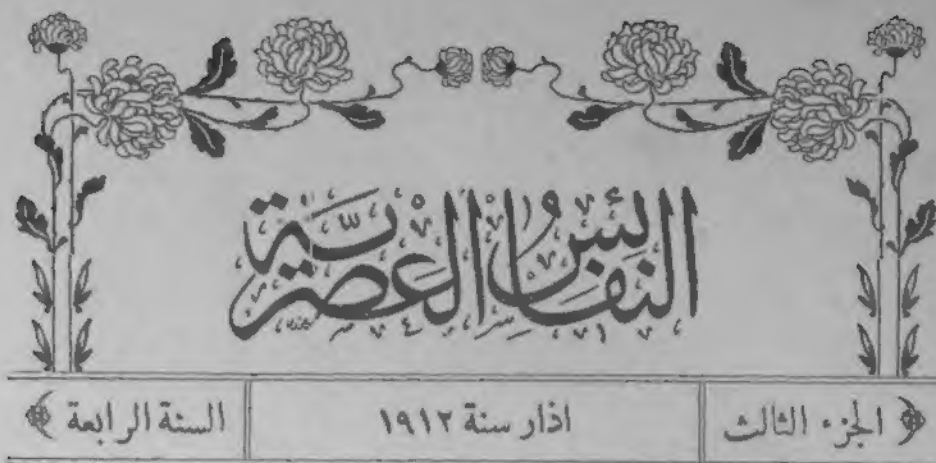 النفائس العصرية
الجزء الثالث
اذار سنة ١٩١٢
السنة الرابعة